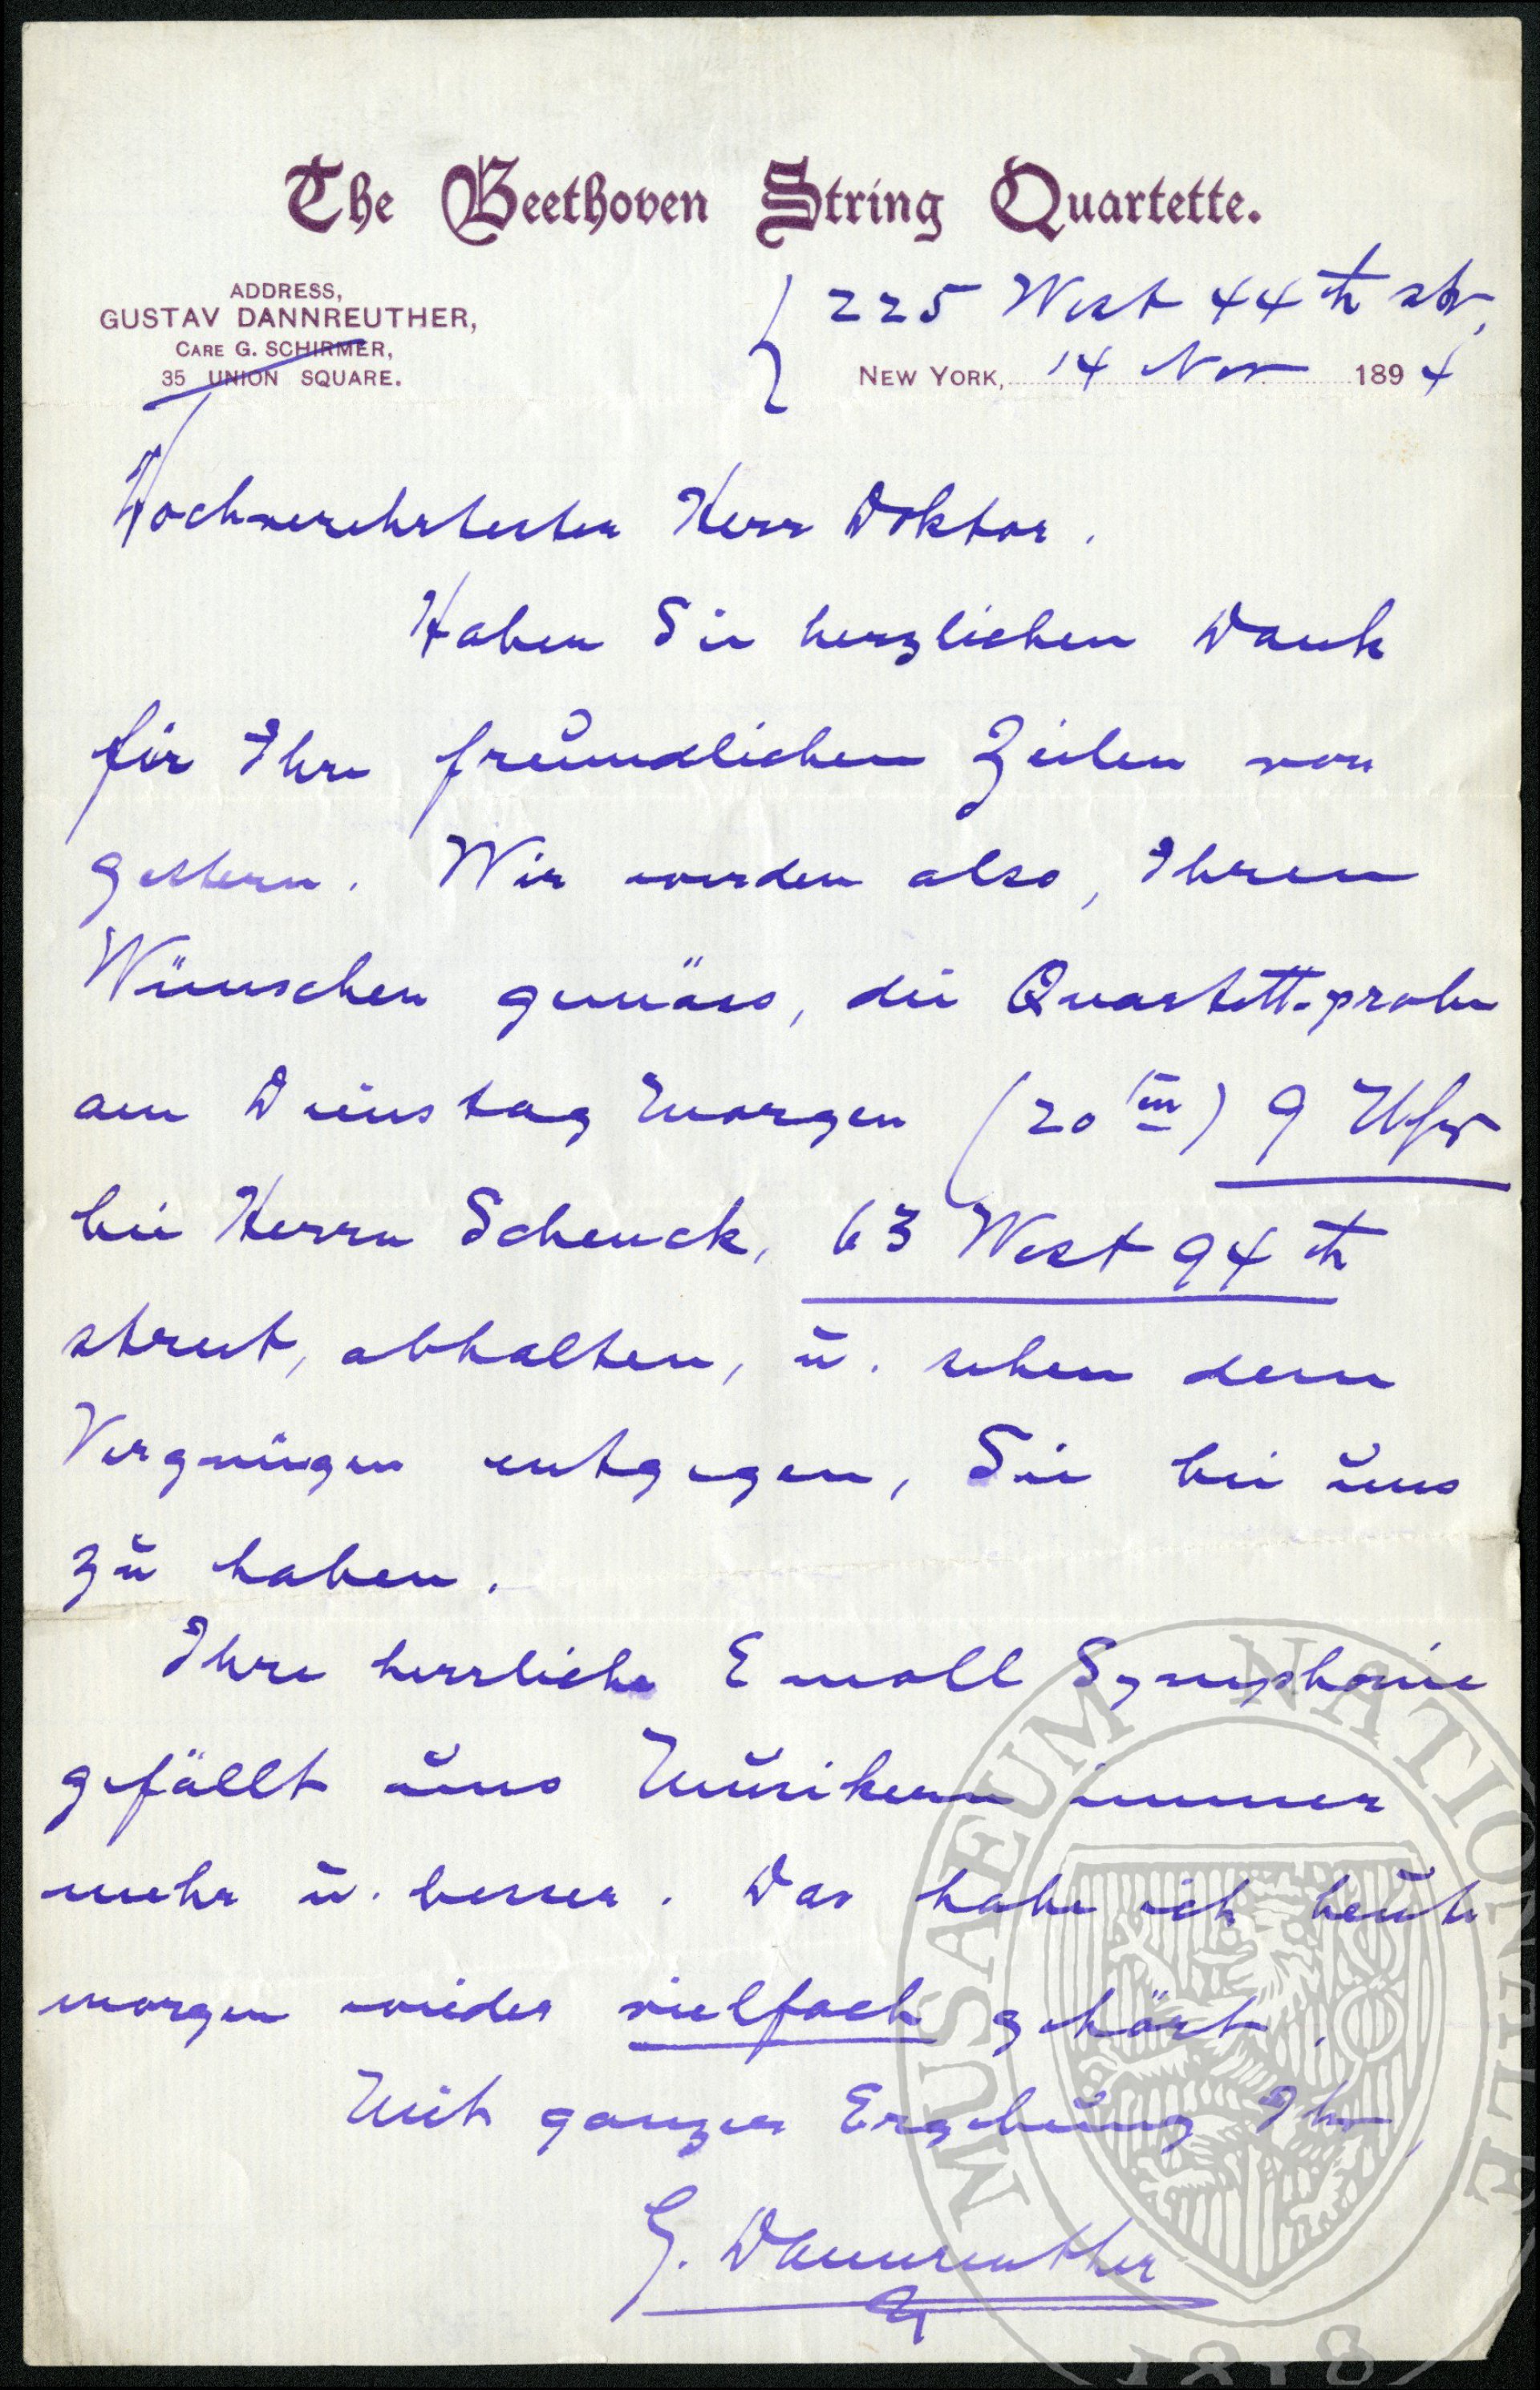 The Beethoven String Quartette.
ADDRESS,
GUSTAV DANNREUTHER,
CARE G. SCHIRMER,
35 UNION SQUARE.
225 West 44th str,
NEW YORK, 14 Nov 1894
Hochverehrtester Herr Doktor.
Haben Sie herzlichen Dank
für Ihre freundlichen Zeilen von
gestern. Wir werden also, Ihren
Wünschen gemäss, die Quartett-probe
am Dienstag Morgen (20ten) 9 Uhr
bei Herrn Schenck, 63 West 94th
street, abhalten, u. sehen dem
Vergnügen entgegen, Sie bei uns
zu haben.
Ihre herrliche E moll Symphonie
gefällt uns Musikern immer
mehr u. besser. Das habe ich heute
morgen wieder vielfach gehört.
Mit ganzer Ergebung Ihr,
G. Dannreuther
MUSAEUM NATIONALE
1818